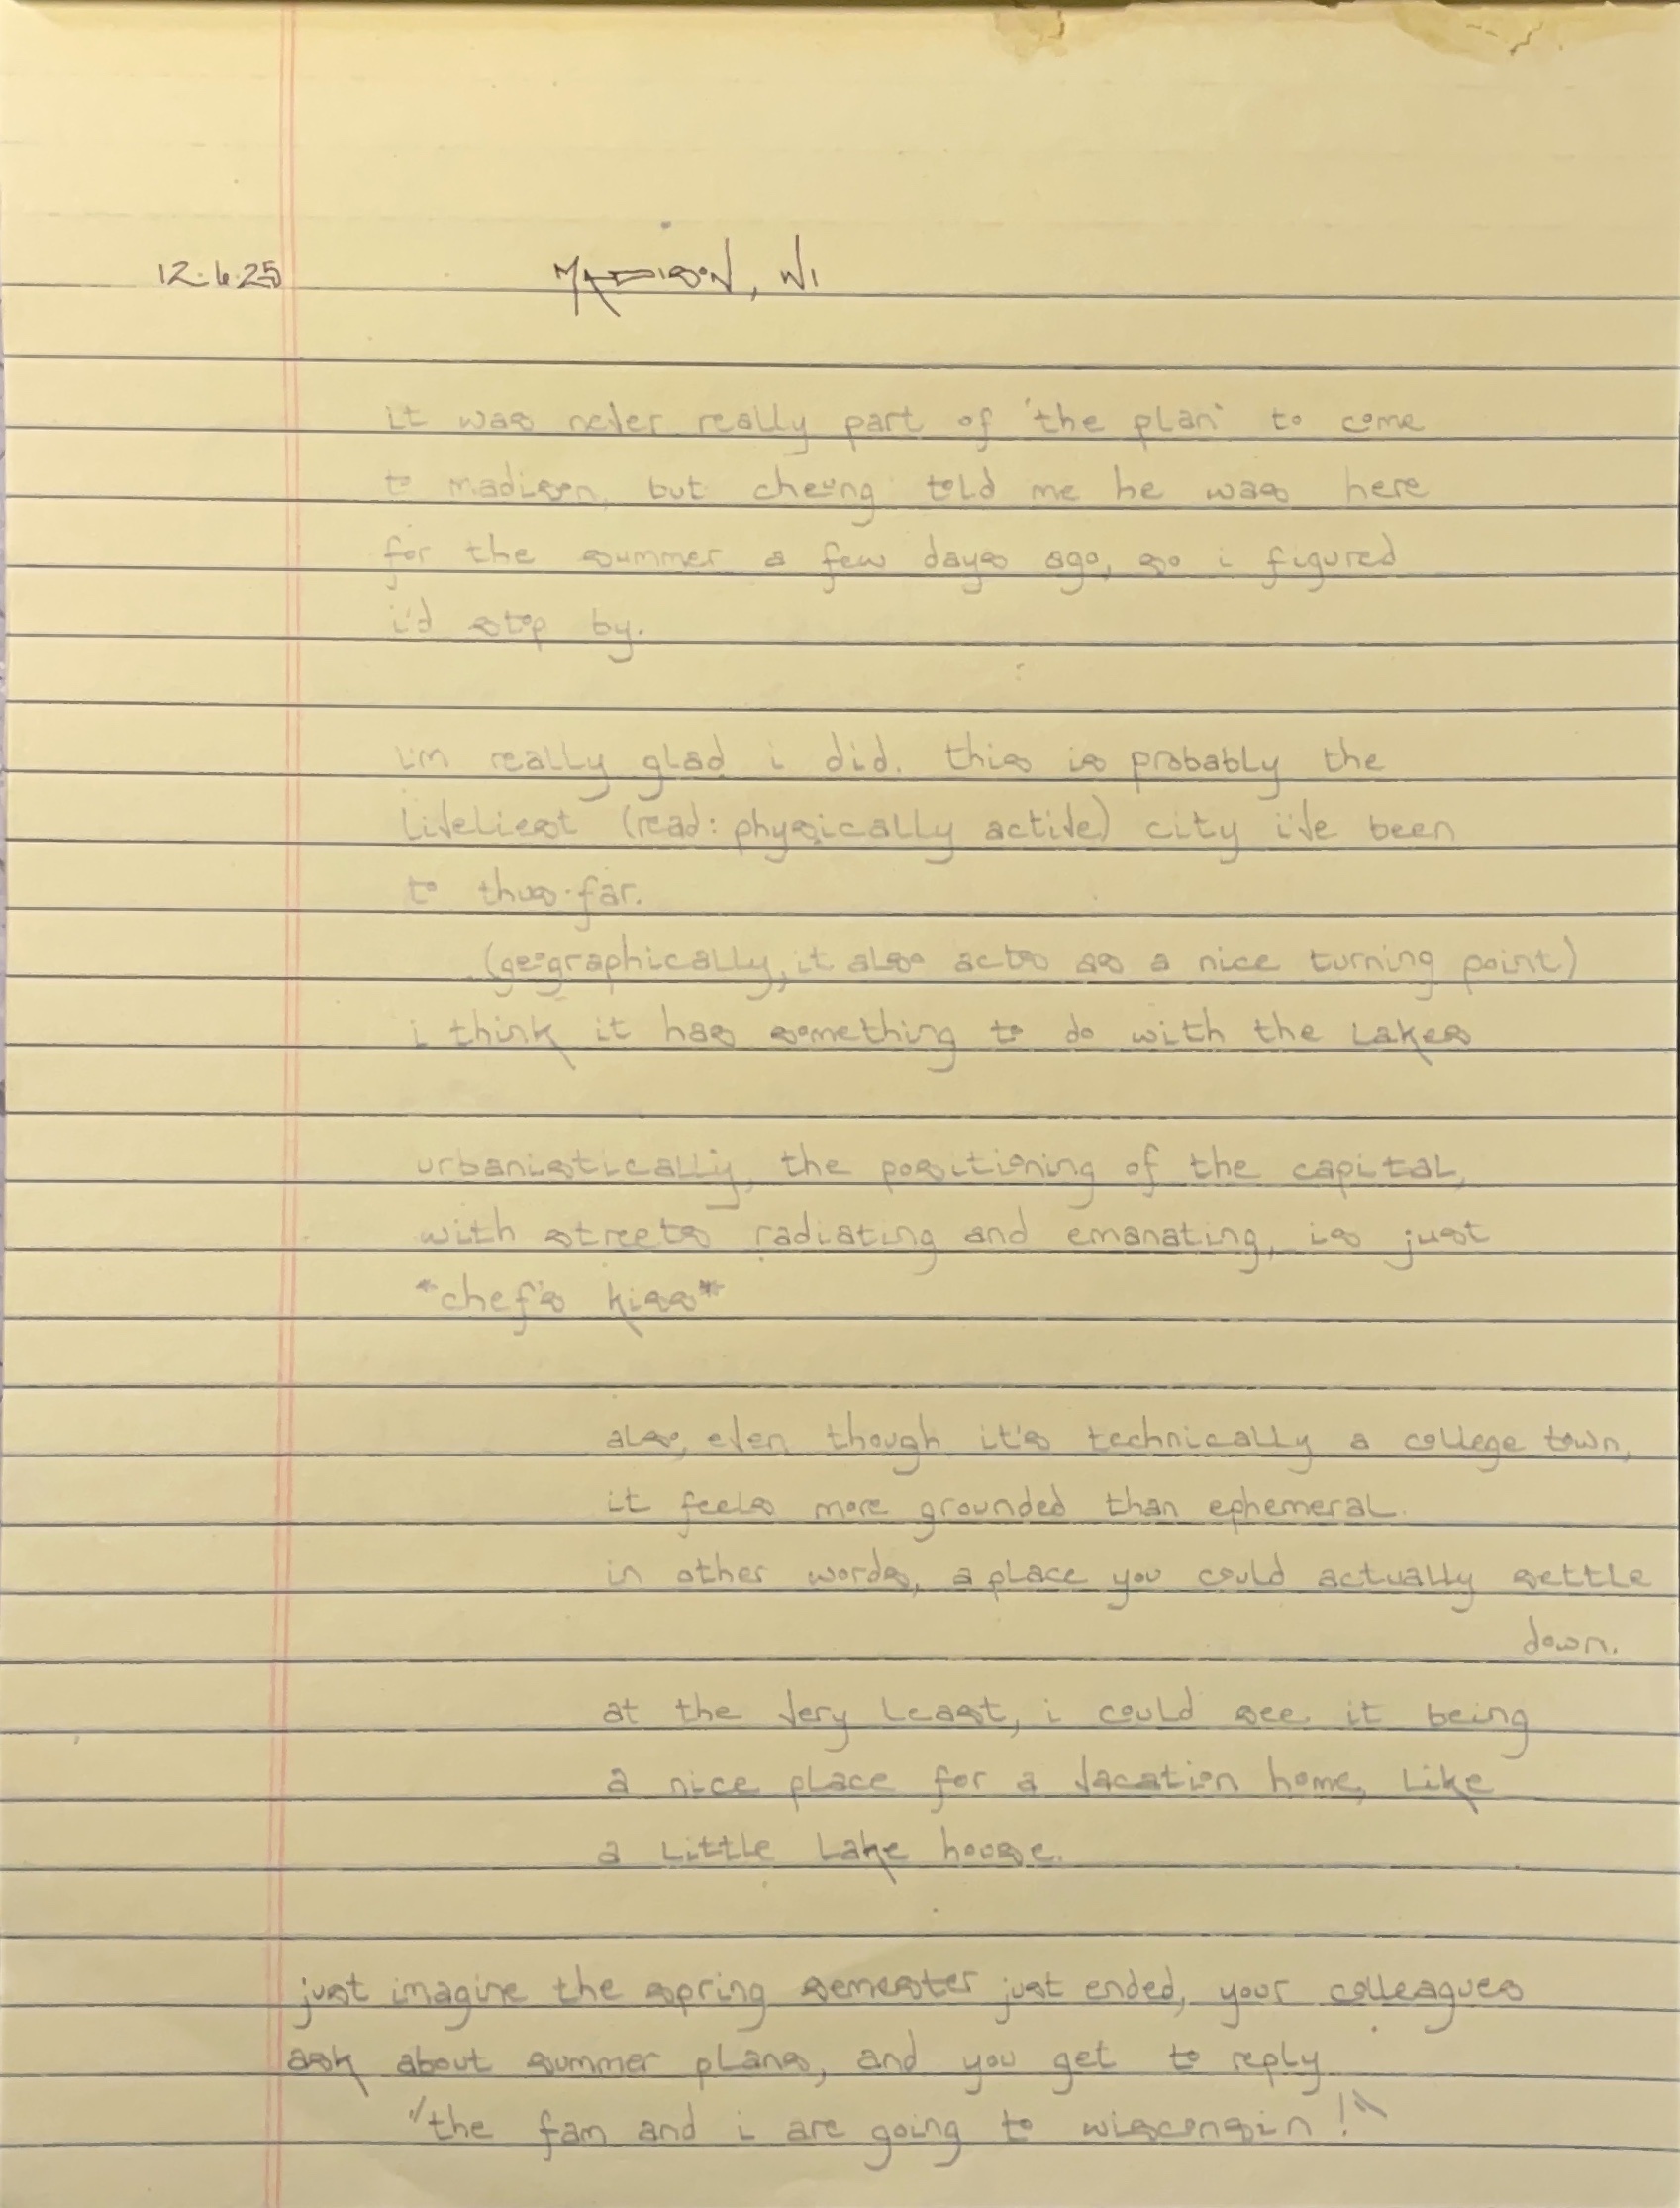 12.6.25 MADISON, WI
it was never really part of 'the plan' to come
to madison, but cheong told me he was here
for the summer a few days ago, so i figured
i'd stop by.
i'm really glad i did. this is probably the
liveliest (read: physically active) city i've been
to thus far.
(geographically, it also acts as a nice turning point)
i think it has something to do with the lakes
urbanistically, the positioning of the capital,
with streets radiating and emanating, is just
*chef's kiss*
also, even though it's technically a college town,
it feels more grounded than ephemeral.
in other words, a place you could actually settle
down.
at the very least, i could see it being
a nice place for a vacation home, like
a little lake house.
just imagine the spring semester just ended, your colleagues
ask about summer plans, and you get to reply
"the fam and i are going to wisconsin!"